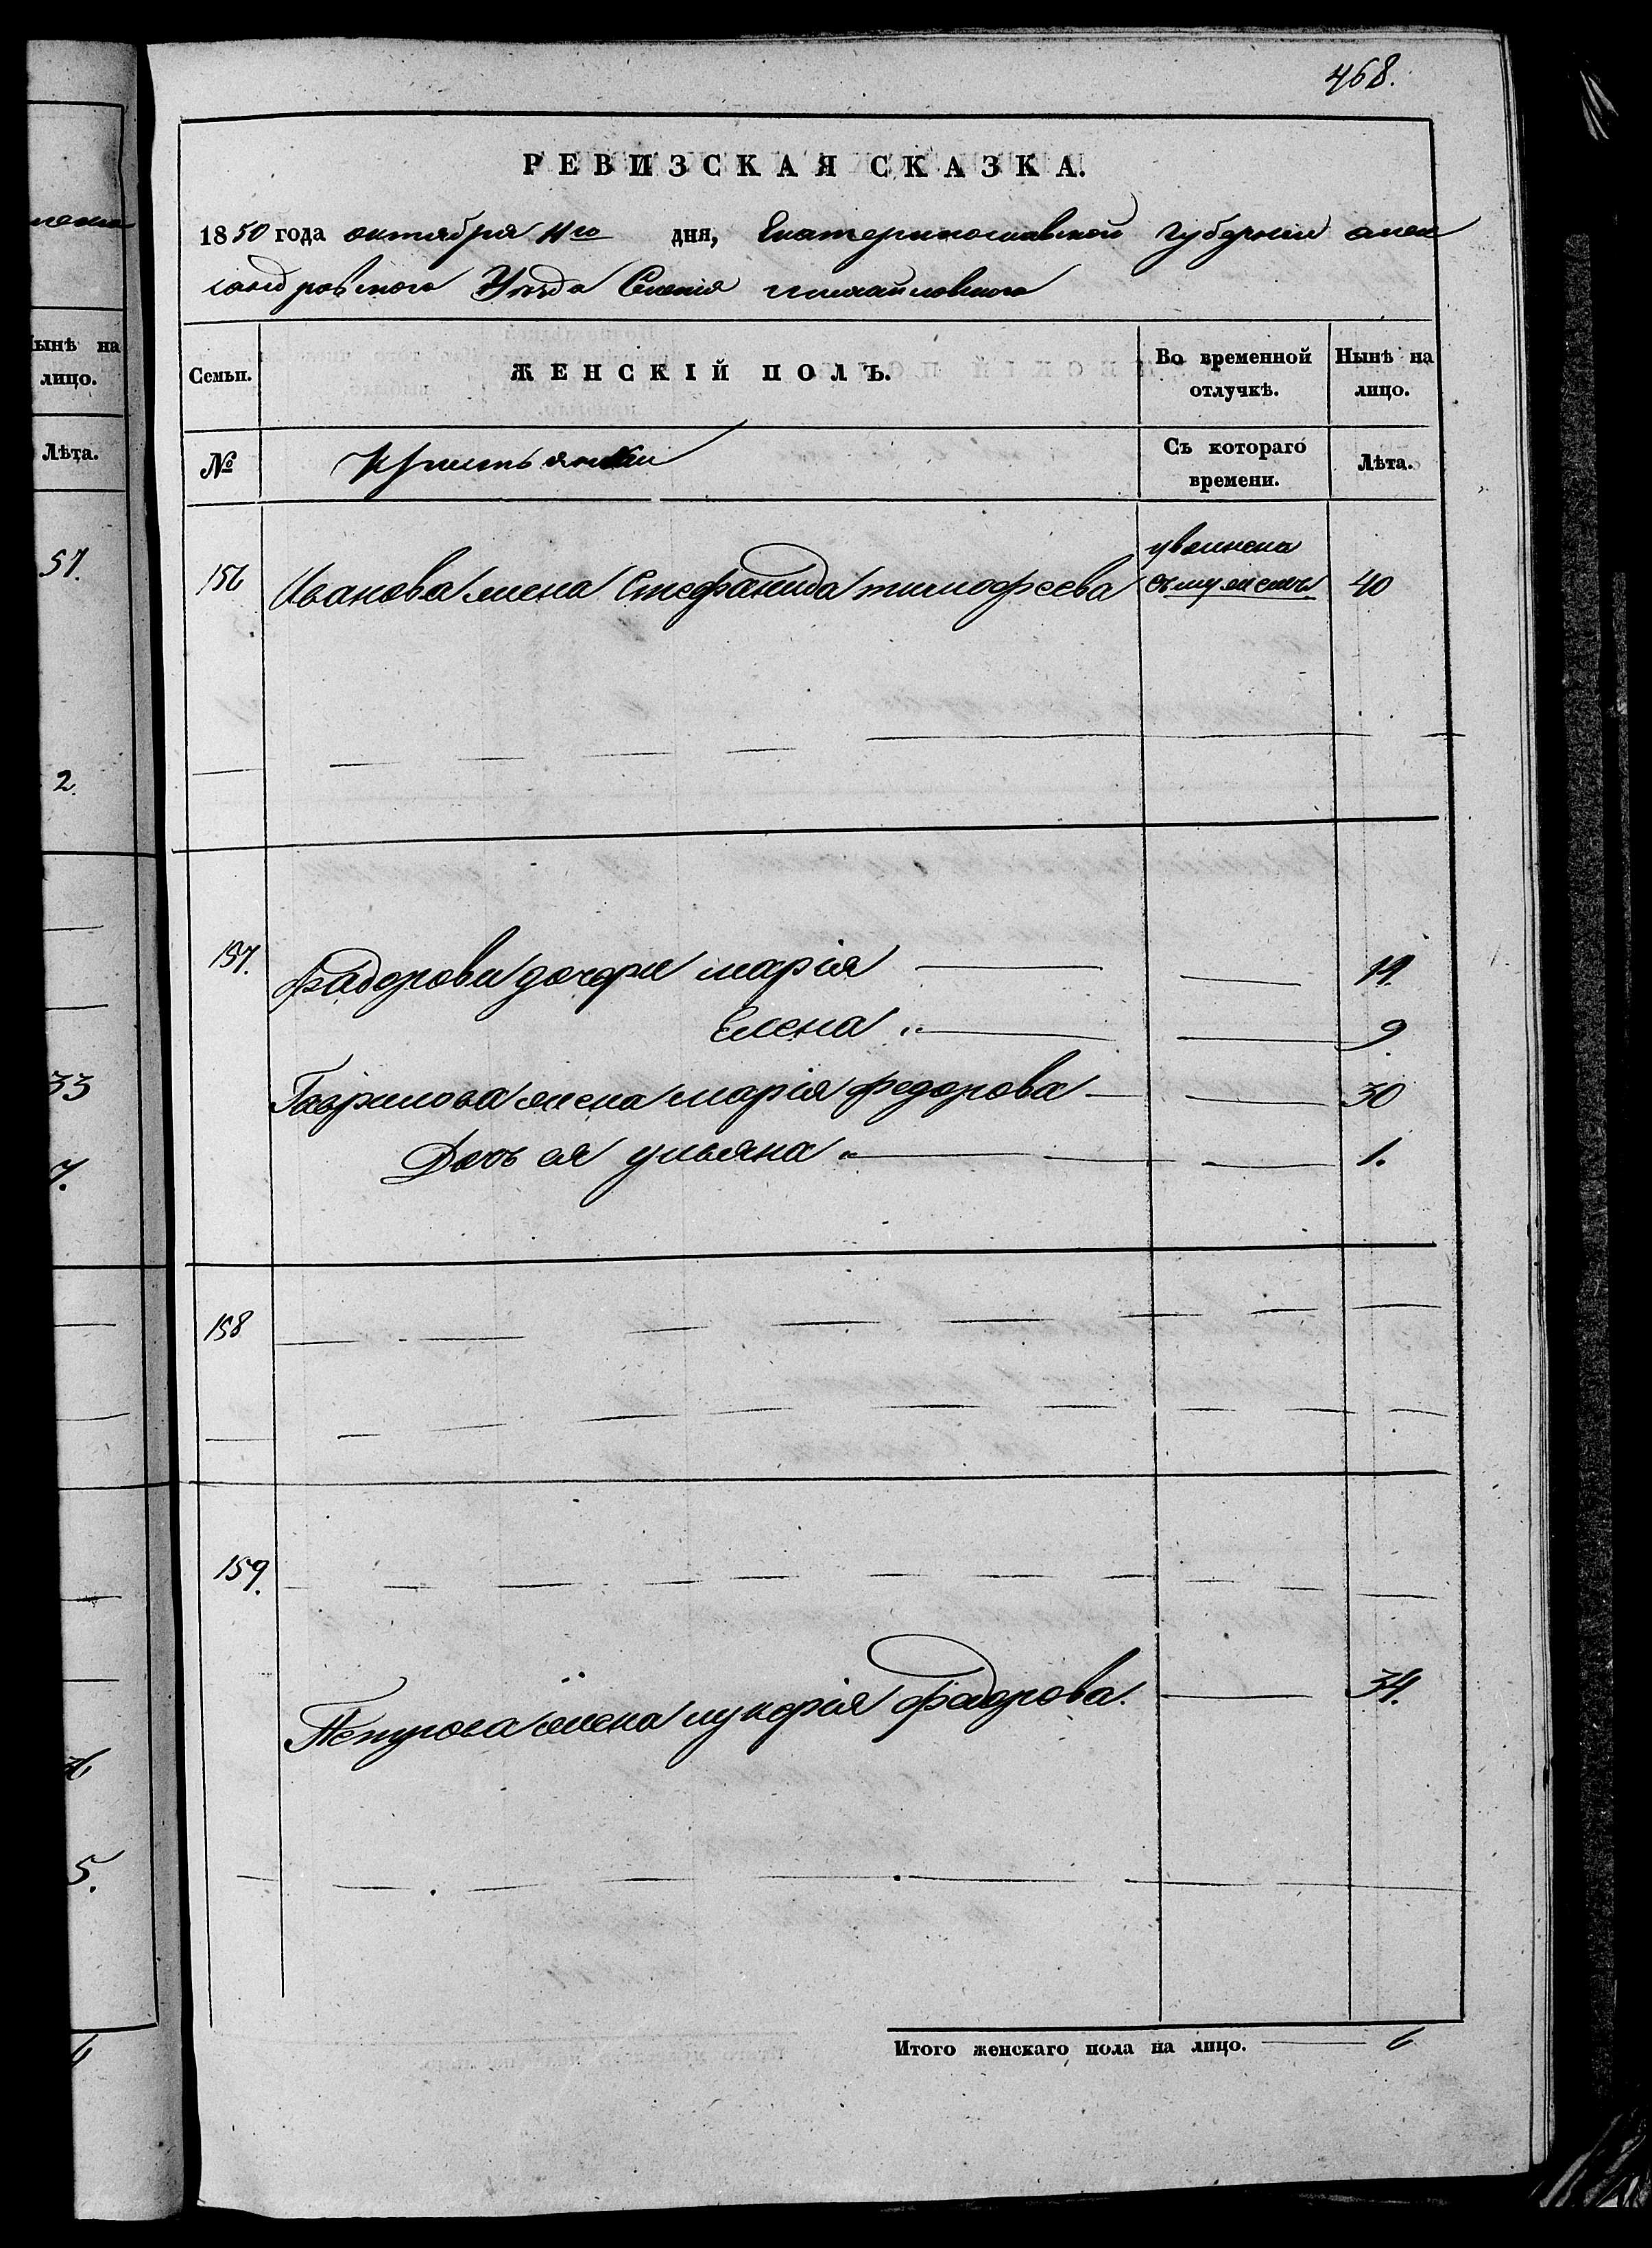 468.
РЕВИЗСКАЯ СКАЗКА.
1850 года октября 11го дня, Екатеринославской Губернии алек
сандровского Уезда Селенiя михайловского
Семьи. ЖЕНСКІЙ ПОЛЪ. Во временной отлучкѣ. Нынѣ на лицо.
№ Крестьянки Съ котораго времени. Лѣта.
156 Иванова жена Стефанида тимофеева уволнена съ мужемъ 40
157. Федорови дочери марія 19.
Елена 9
Гаврилова жена марія федорова 30
Дочь ея ульяна 1.
158
159.
Петрова жена лукерія Федорова. 34.
Итого женскаго пола на лицо. 6
ынѣ на
лицо.
Лѣта.
51.
2.
33
7.
5.